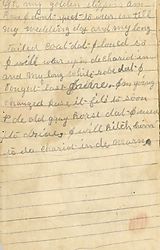 Git my golden slippers am
don't yet to wear untill
my wedding day and my long
tailed coat dat I loved so
I will wear up in de chariot in
and my long white robe dat I
bought last June. I'm going
changed Kase it fits to soon
& de old gray horse dat I used
to drive. I will hitch him
to de chariot in de morn